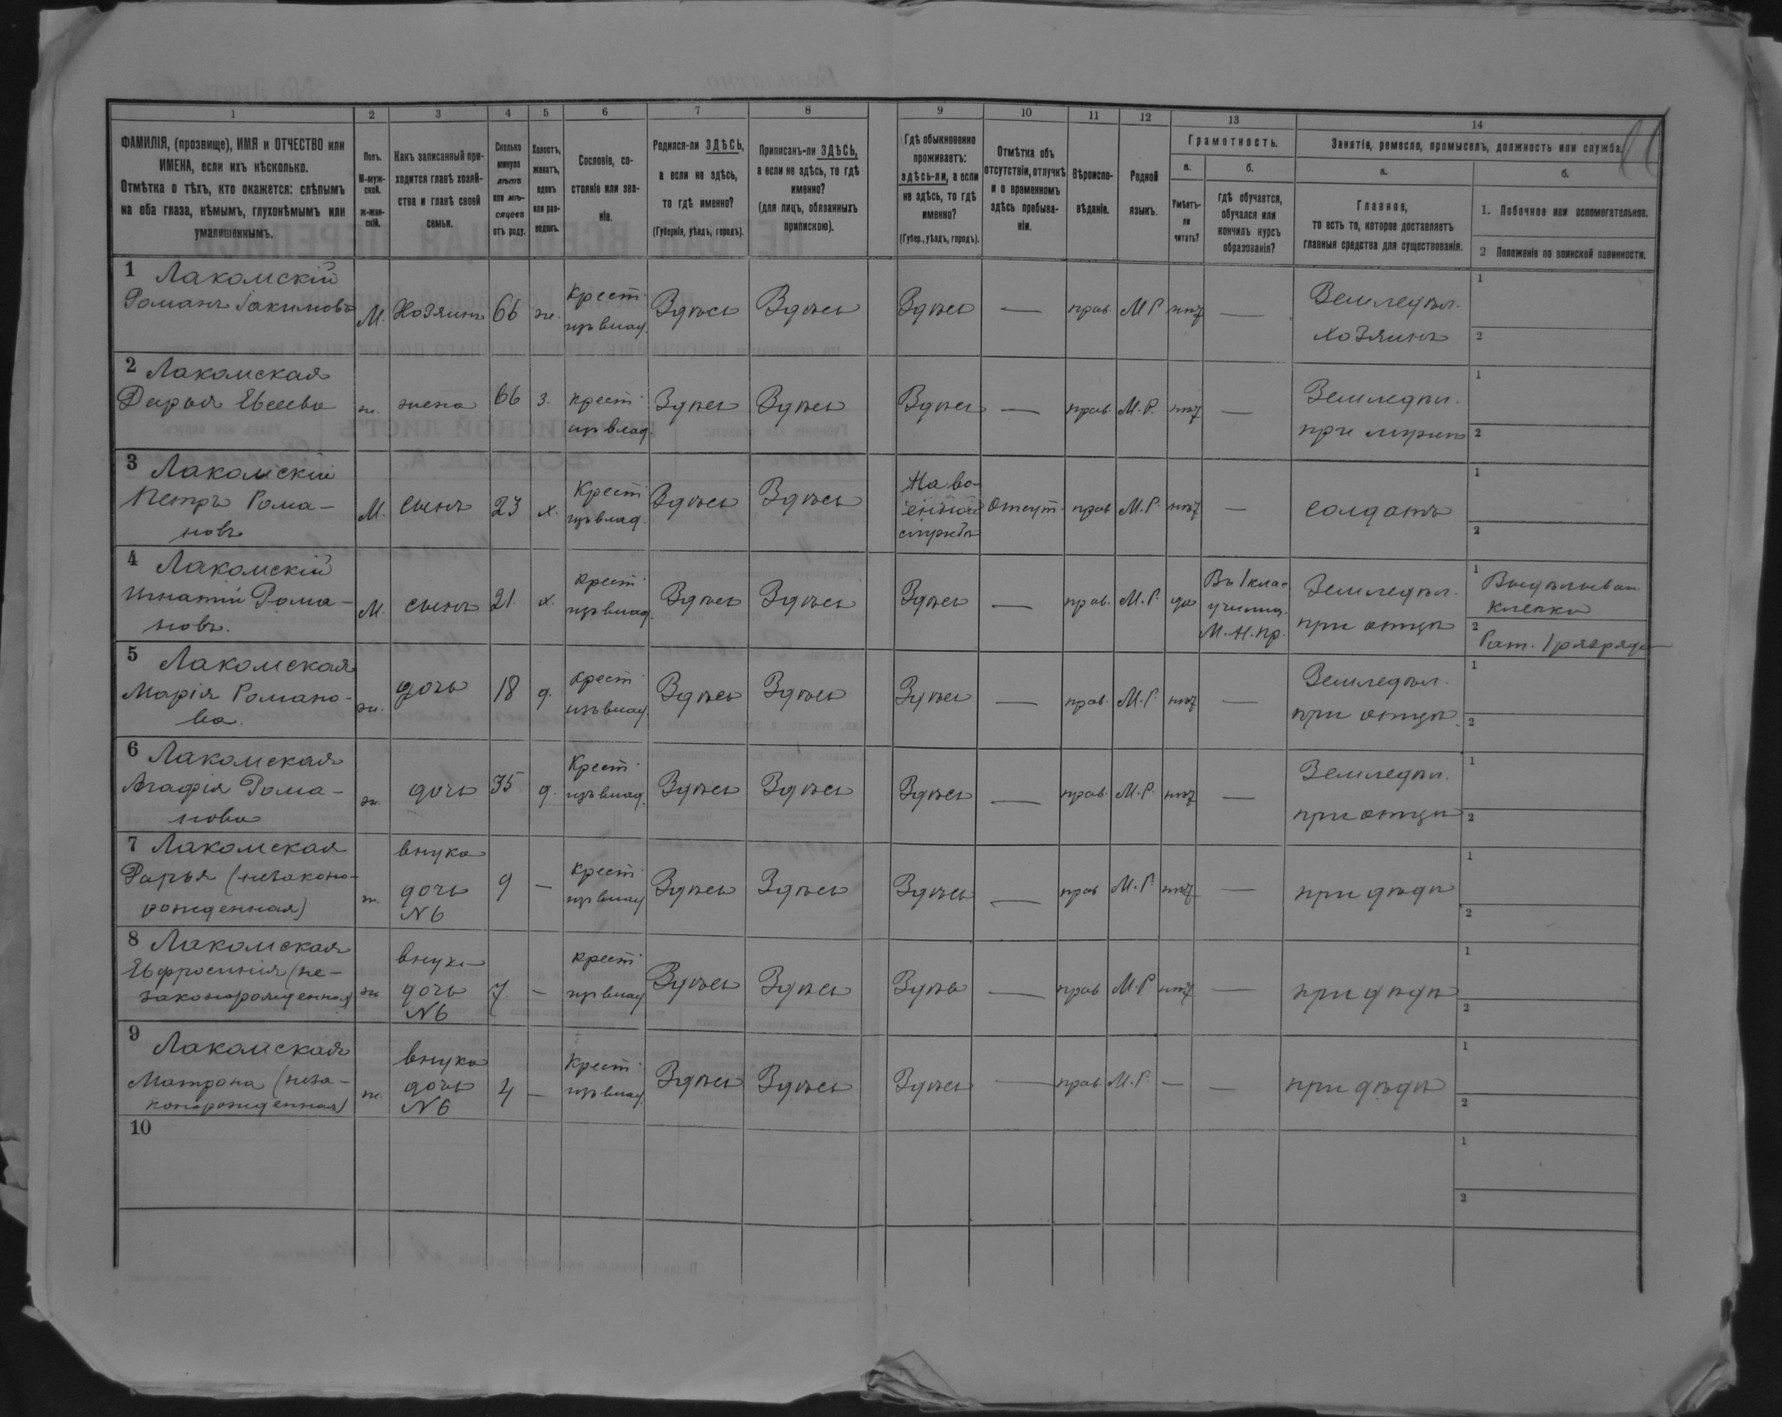 1 2 3 4 5 6 7 8 9 10 11 12 13 14
ФАМИЛІЯ, (прозвище), ИМЯ и ОТЧЕСТВО или
ИМЕНА, если ихъ нѣсколько.
Отмѣтка о тѣхъ, кто окажется: слѣпымъ
на оба глаза, нѣмымъ, глухонѣмымъ или
умалишеннымъ.
Полъ.
М-муж-
ской.
ж-жен-
скій.
Какъ записанный при-
ходится главѣ хозяй-
ства и главѣ своей
семьи.
Сколько
минуло
лѣтъ
или мѣ-
сяцевъ
отъ роду.
Холостъ,
женатъ,
вдовъ
или раз-
веденъ.
Сословіе, со-
стояніе или зва-
ніе.
Родился-ли ЗДѢСЬ,
а если не здѣсь,
то гдѣ именно?
(Губернія, уѣздъ, городъ).
Приписанъ-ли ЗДѢСЬ,
а если не здѣсь, то гдѣ
именно?
(для лицъ, обязанныхъ
припискою).
Гдѣ обыкновенно
проживаетъ:
здѣсь-ли, а если
не здѣсь, то гдѣ
именно?
(Губер., уѣздъ, городъ).
Отмѣтка объ
отсутствіи, отлучкѣ
и о временномъ
здѣсь пребыва-
ніи.
Вѣроиспо-
вѣданіе.
Родной
языкъ.
Грамотность.
а.
Умѣетъ-
ли
читать?
б.
гдѣ обучается,
обучался или
кончилъ курсъ
образованія?
Занятія, ремесло, промыселъ, должность или служба.
а.
Главное,
то есть то, которое доставляетъ
главныя средства для существованія.
б.
1. Побочное или вспомогательное.
2 Положеніе по воинской повинности.
1 Лакомскій
Романъ Іакимовъ М. Хозяинъ 66 ж. Крест. изъ влад. Здѣсь Здѣсь Здѣсь — прав М Р нѣтъ — Земледѣл. хозяинъ 1 2
2 Лакомская
Дарья Евсеева ж. жена 66 з. крест. изъ влад. Здѣсь Здѣсь Здѣсь — прав М.Р. нѣтъ — Земледѣл. при мужѣ 1 2
3 Лакомскій
Петръ Рома-
новъ М. сынъ 23 х. Крест. изъ влад. Здѣсь Здѣсь На во-
енной
службѣ Отсут. прав М.Р. нѣтъ — солдатъ 1 2
4 Лакомскій
Игнатій Рома-
новъ. М. сынъ 21. х. крест. изъ влад. Здѣсь Здѣсь Здѣсь — прав. М.Р. да Въ 1 клас
училищ.
М.Н.пр. Земледѣл. при отцѣ 1 клепки
2 Рат. 1 разряда
5 Лакомская
Марія Романо-
ва. ж. дочь 18 д. крест. изъ влад. Здѣсь Здѣсь Здѣсь — прав. М.Р. нѣтъ — Земледѣл. при отцѣ. 1 2
6 Лакомская
Агафія Рома-
нова ж. дочь 35 д. Крест. изъ влад. Здѣсь Здѣсь Здѣсь — прав М.Р. нѣтъ — Земледѣл. при отцѣ 1 2
7 Лакомская
Дарья (незаконо-
рожденная) ж. внука
дочь
№6 9 — крест. изъ влад Здѣсь Здѣсь Здѣсь — прав М.Р. нѣтъ — при дѣдѣ 1 2
8 Лакомская
Евфросинія (не-
законорожденная) ж внука
дочь
№6 7. — крест. изъ влад Здѣсь Здѣсь Здѣсь — прав М.Р нѣтъ — при дѣдѣ 1 2
9 Лакомская
Матрона (неза-
конорожденная) ж. внука
дочь
№6 4 — Крест. изъ влад. Здѣсь Здѣсь Здѣсь — прав М.Р. — — при дѣдѣ 1 2
10 1 2